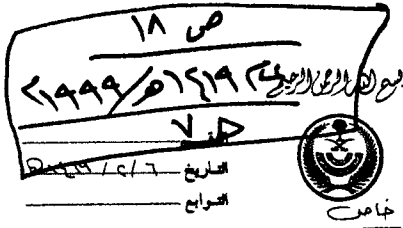 ص ١٨
بسم الله الرحمن الرحيم
عام ١٤١٩هـ/١٩٩٩م
التاريخ
التوابع
خاص